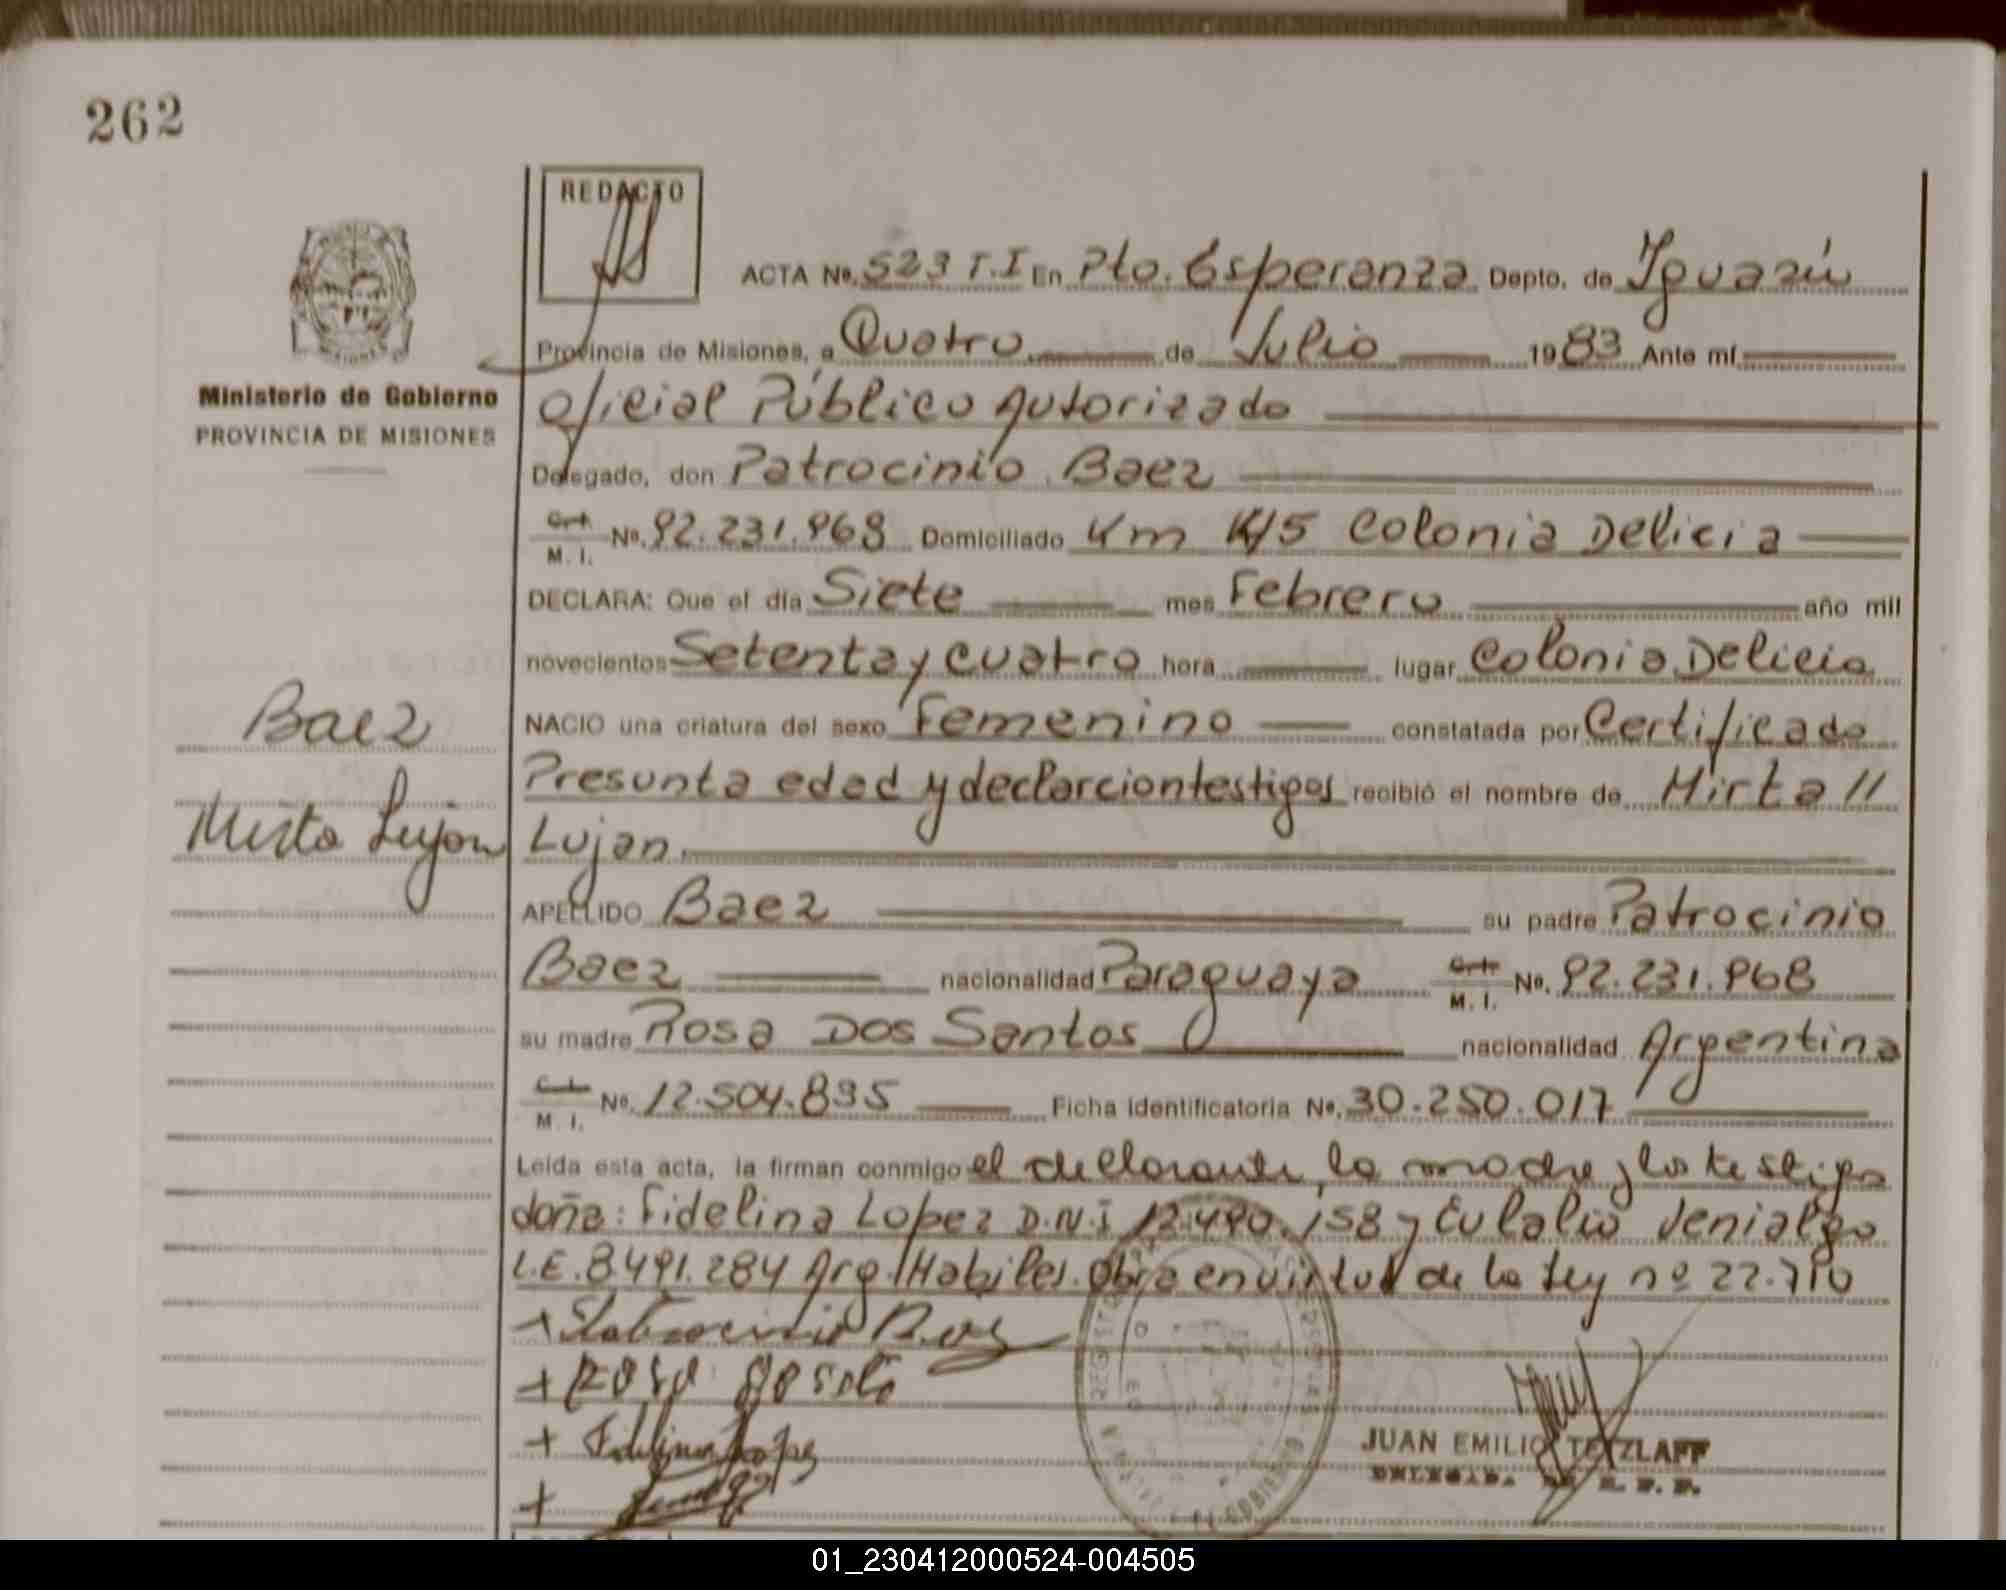 262
REDACTO
ACTA Nº. 523 T.I En Pto. Esperanza Depto. de Iguazú
Provincia de Misiones, a Quatro de Julio 1983 Ante mí
Oficial Público Autorizado
Ministerio de Gobierno
PROVINCIA DE MISIONES
Delegado, don Patrocinio Baez
M. I. Nº. 92.231.968 Domiciliado Km 15 Colonia Delicia
DECLARA: Que el día Siete mes Febrero año mil
novecientos Setenta y cuatro hora lugar Colonia Delicia
NACIO una criatura del sexo Femenino constatada por Certificado
Presunta edad y declarciontestigos recibió el nombre de Mirta //
Lujan.
Baez
Mirta Lujan
APELLIDO Baez su padre Patrocinio
Baez nacionalidad Paraguaya M. I. Nº. 92.231.968
su madre Rosa Dos Santos nacionalidad Argentina
M. I. Nº. 12.504.895 Ficha identificatoria Nº. 30.250.017
Leída esta acta, la firman conmigo el declarante, la madre y los testigos
doña: Fidelina Lopez D.N.I 12.490.158 y Eulalio Venialgo
L.E. 8.491.284 Arg. Habiles. Obra en virtud de la Ley nº 22.710
+ Patrocinio Baez
+ Rosa
+ Fidelina Lopez
+
JUAN EMILIO TETZLAFF
01_230412000524-004505